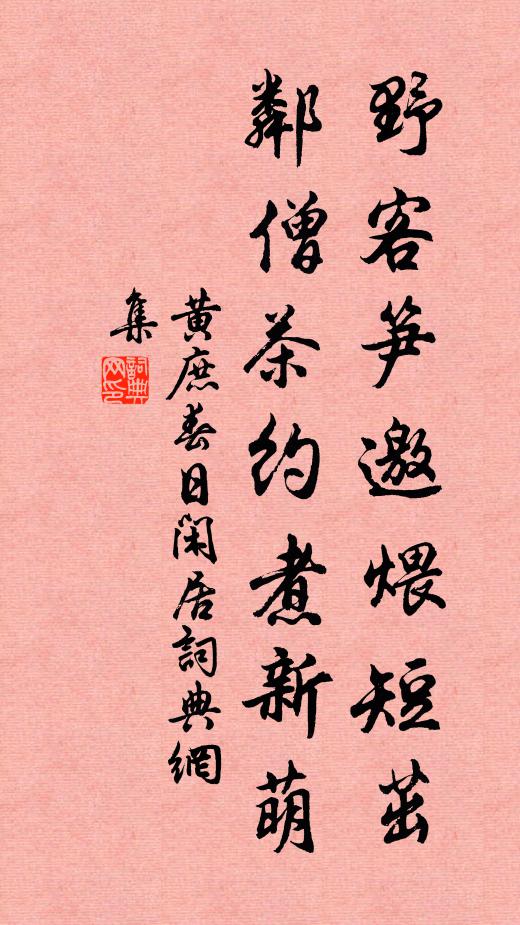 野客笋邀煨短茁
鄰僧茶約煮新萌
黃庶春日閑居詞典網
集
詞典網印